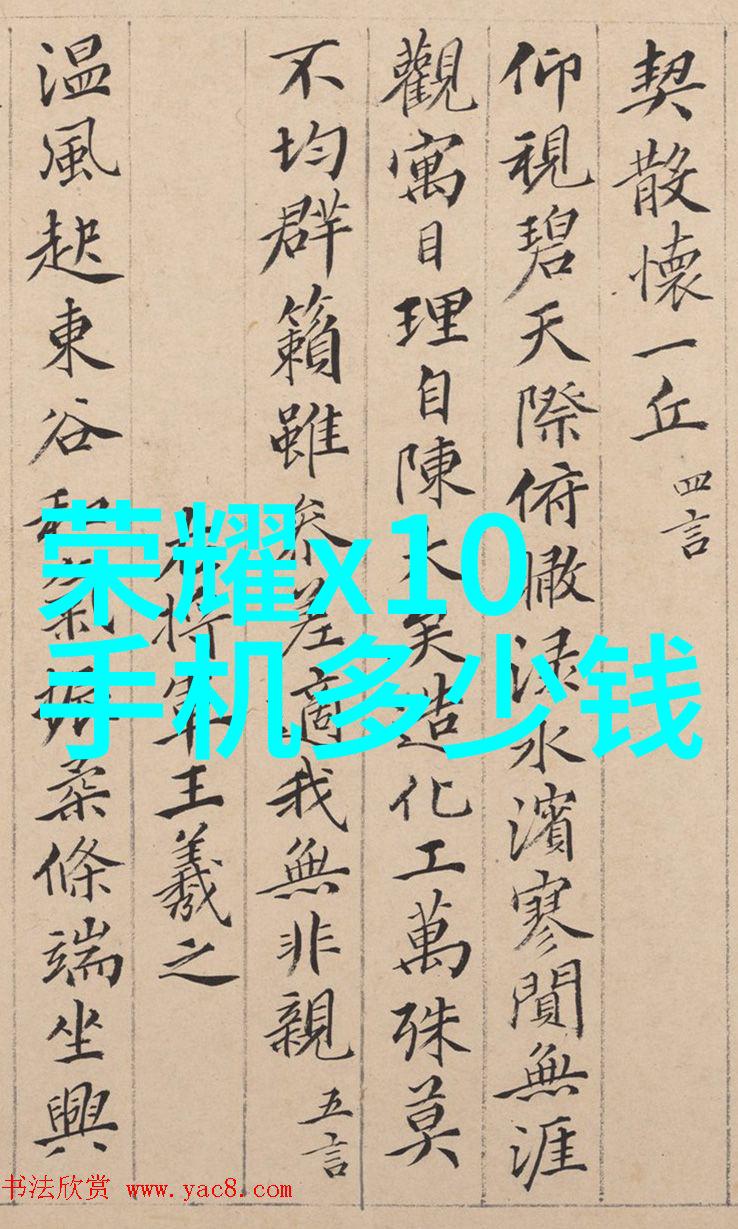 契散懷一丘 四言
仰視碧天際俯瞰渌水濱寥閴無涯
觀寓目理自陳大矣造化工萬殊莫
不均群籟雖参差適我無非親 五言
右將軍王羲之
温風起東谷和氣振柔條端坐興
荣耀x10
手机多少钱
书法欣赏 www.yac8.com